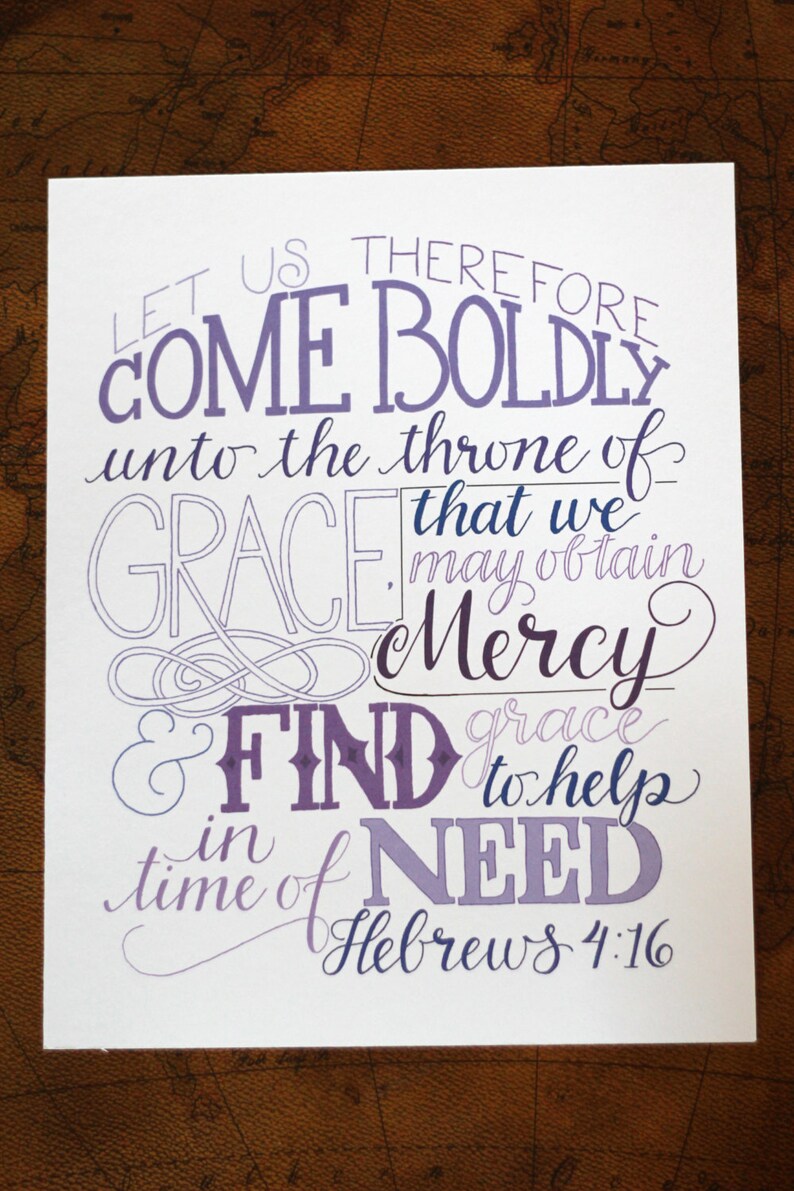 LET US THEREFORE
COME BOLDLY
unto the throne of
GRACE,
that we
may obtain
Mercy
& FIND
grace
to help
in
time of
NEED
Hebrews 4:16